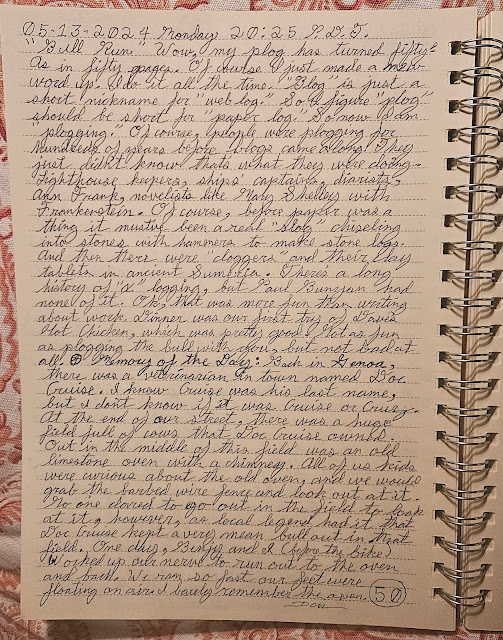 05-13-2024 Monday 20:25 P.D.T.
"Bull Run." Wow, my plog has turned fifty!
As in fifty pages. Of course I just made a new
word up. I do it all the time. "Blog" is just a
short nickname for "web log." So I figure "plog"
should be short for "paper log." So now I am
"plogging." Of course, people were plogging for
hundreds of years before blogs came along. They
just didn't know that's what they were doing.
Lighthouse keepers, ships' captains, diarists,
Ann Frank, novelists like Mary Shelley with
Frankenstein. Of course, before paper was a
thing it must've been a real "slog" chiseling
into stones with hammers to make stone logs.
And then there were "cloggers" and their clay
tablets in ancient Sumeria. There's a long
history of "x" logging, but Paul Bunyan had
none of it. Oh, that was more fun than writing
about work. Dinner was our first try of Dave's
Hot Chicken, which was pretty good. Not as fun
as plogging the bull with you, but not bad at
all. Memory of the Day: Back in Genoa,
there was a veterinarian in town named Doc
Cruise. I know Cruise was his last name,
but I don't know if it was Cruise or Cruz.
At the end of our street, there was a huge
field full of cows that Doc Cruise owned.
Out in the middle of this field was an old
limestone oven with a chimney. All of us kids
were curious about the old oven, and we would
grab the barbed wire fence and look out at it.
No one dared to go out in the field to look
at it, however, as local legend had it that
Doc Cruise kept a very mean bull out in that
field. One day, Benjy and I (before the bike)
worked up our nerve to run out to the oven
and back. We ran so fast our feet were
floating on air. I barely remember the oven. 50